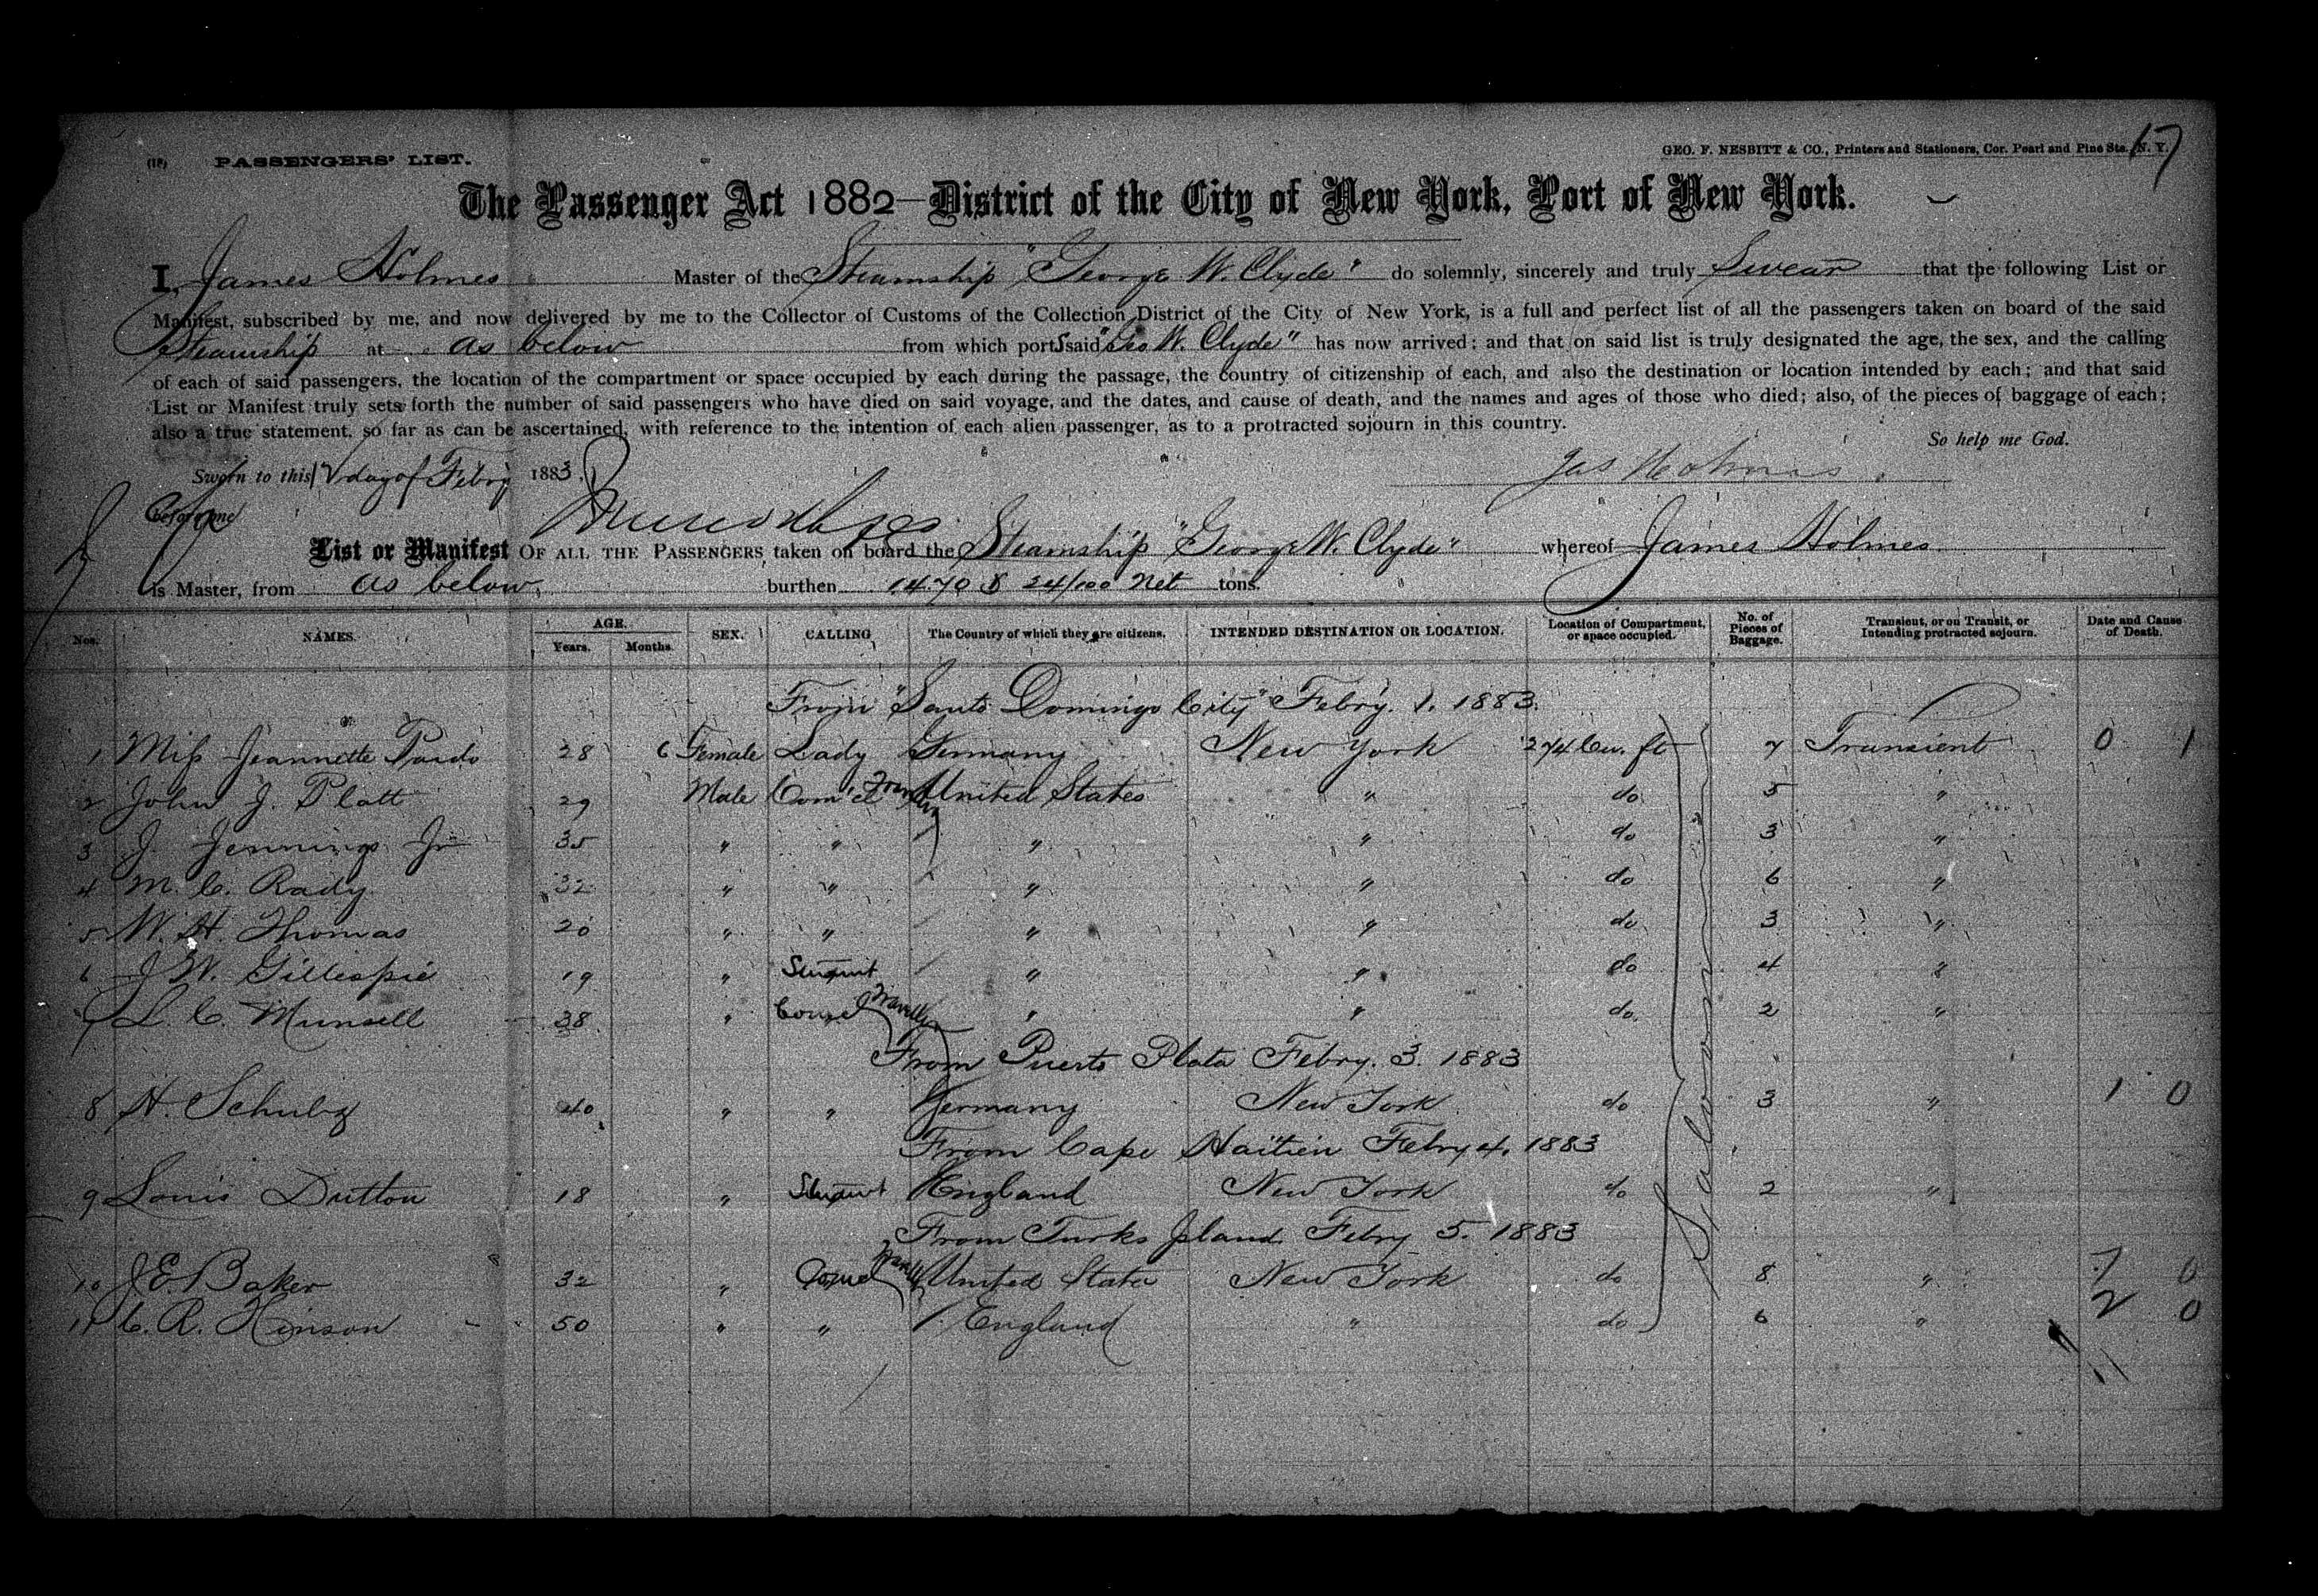 (18) PASSENGERS' LIST. GEO. F. NESBITT & CO., Printers and Stationers, Cor. Pearl and Pine Sts., N. Y. 17
The Passenger Act 1882—District of the City of New York, Port of New York.
I, James Holmes Master of the Steamship "George W. Clyde" do solemnly, sincerely and truly Swear that the following List or
Manifest, subscribed by me, and now delivered by me to the Collector of Customs of the Collection District of the City of New York, is a full and perfect list of all the passengers taken on board of the said
Steamship at as below from which port s said "Geo W. Clyde" has now arrived; and that on said list is truly designated the age, the sex, and the calling
of each of said passengers, the location of the compartment or space occupied by each during the passage, the country of citizenship of each, and also the destination or location intended by each; and that said
List or Manifest truly sets forth the number of said passengers who have died on said voyage, and the dates, and cause of death, and the names and ages of those who died; also, of the pieces of baggage of each;
also a true statement, so far as can be ascertained, with reference to the intention of each alien passenger, as to a protracted sojourn in this country.
So help me God.
Sworn to this 12 day of Febry 1883. Jas Holmes
before me
List or Manifest OF ALL THE PASSENGERS taken on board the Steamship "George W. Clyde" whereof James Holmes
is Master, from as below, burthen 1470 & 24/100 Net tons.
Nos. NAMES. AGE. Years. Months. SEX. CALLING The Country of which they are citizens. INTENDED DESTINATION OR LOCATION. Location of Compartment, or space occupied. No. of Pieces of Baggage. Transient, or on Transit, or Intending protracted sojourn. Date and Cause of Death.
From "Santo Domingo City" Febry. 1. 1883.
1 Miss Jeannette Pardo 28 6 Female Lady Germany New York 274 Cu. ft 7 Transient 0 1
2 John J. Platt 29 Male Com'cl Traveller United States " do 5 "
3 J. Jennings Jr 35 " " " " do 3 "
4 M. C. Rady 32 " " " " do 6 "
5 W. H. Thomas 20 " " " " do 3 "
6 J. W. Gillespie 19 " Student " " do 4 "
7 L. C. Munsell 38 " Comcl Traveller " " do 2 "
From Puerto Plata Febry. 3. 1883
8 H. Schulz 40 " " Germany New York do 3 " 1 0
From Cape Haitien Febry 4. 1883
9 Louis Dutton 18 " Student England New York do 2 "
From Turks Island Febry 5. 1883
10 J. E. Baker 32 " Comcl Traveller United States New York do 8 " 7 0
11 C. R. Hinson 50 " " England " do 6 " 2 0
Saloon
11